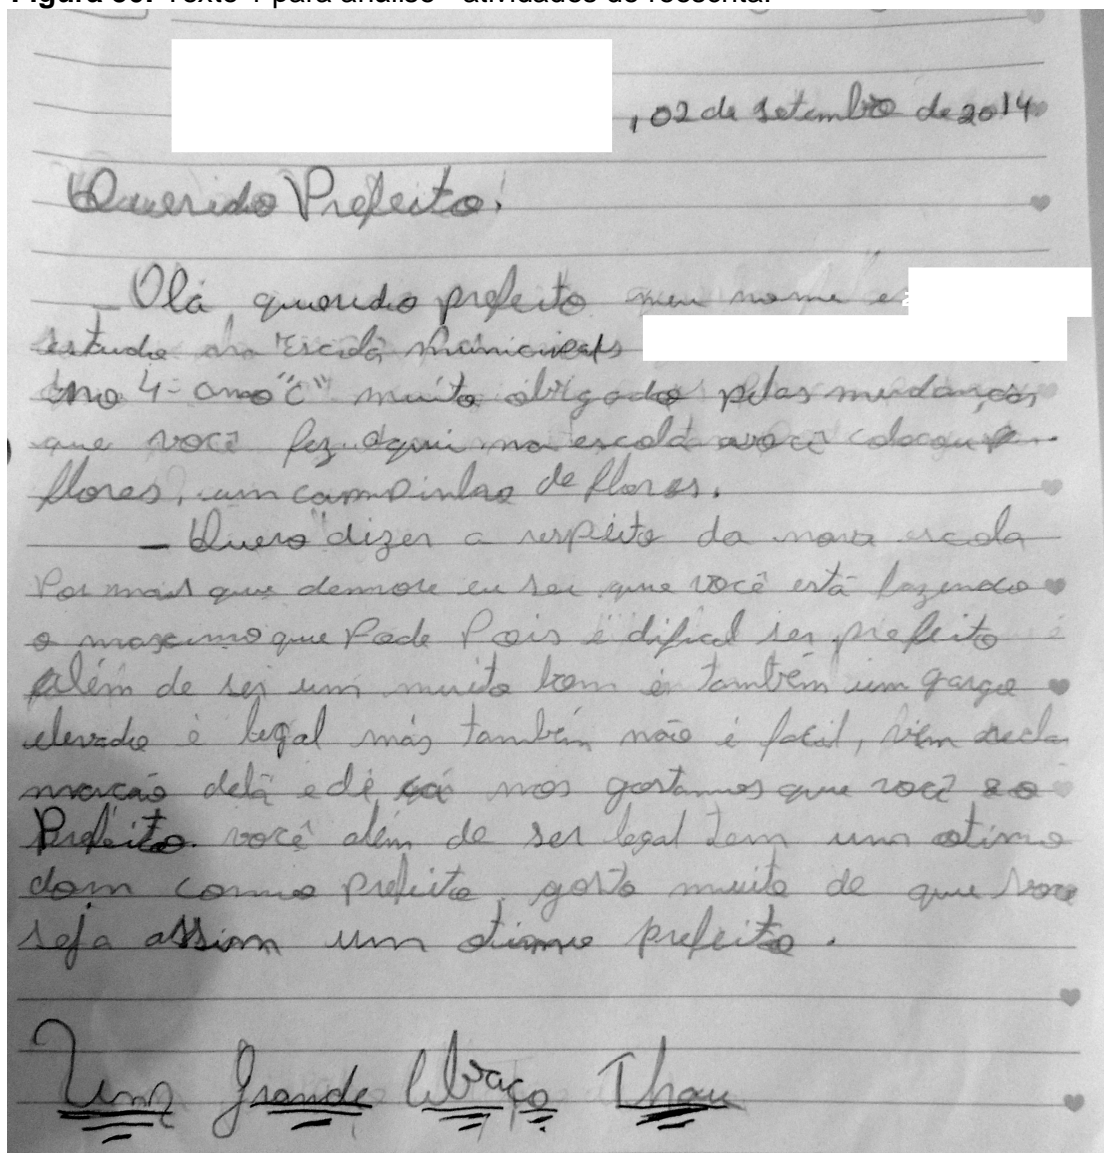 , 02 de setembro de 2014
Querido Prefeito!
_ Olá, querido prefeito meu nome e
estudo na "Escola Municipal
no 4- ano "C" muito obrigado pelas mudanças,
que você fez aqui na escola você colocou
flores, um campinho de flores.
_ Quero dizer a respeito da nova escola
Por mais que demore eu sei que você está fazendo
o maximo que Pode Pois é dificil ser prefeito
além de ser um muito bom é também um gargo
elevado é legal más também não é facil, vem recla
marcão delá e dê cá nos gostamos que você
Prefeito. você além de ser legal tem um otimo
dom como prefeito, gosto muito de que voce
seja assim um otimo prefeito.
Um Grande Abraço Thau